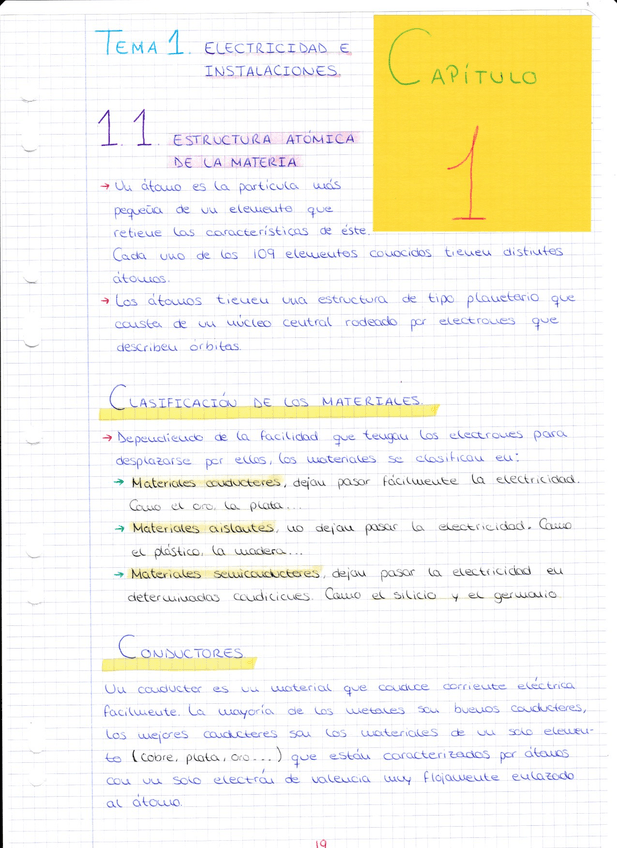 TEMA 1. ELECTRICIDAD E
INSTALACIONES.
CAPÍTULO
1
1.1. ESTRUCTURA ATÓMICA
DE LA MATERIA
→ Un átomo es la partícula más
pequeña de un elemento que
retiene las características de éste.
Cada uno de los 109 elementos conocidos tienen distintos
átomos.
→ Los átomos tienen una estructura de tipo planetario que
consta de un núcleo central rodeado por electrones que
describen órbitas.
CLASIFICACIÓN DE LOS MATERIALES.
→ Dependiendo de la facilidad que tengan los electrones para
desplazarse por ellos, los materiales se clasifican en:
→ Materiales conductores, dejan pasar fácilmente la electricidad.
Como el oro, la plata...
→ Materiales aislantes, no dejan pasar la electricidad. Como
el plástico, la madera...
→ Materiales semiconductores, dejan pasar la electricidad en
determinadas condiciones. Como el silicio y el germanio.
CONDUCTORES
Un conductor es un material que conduce corriente eléctrica
facilmente. La mayoría de los metales son buenos conductores,
los mejores conductores son los materiales de un solo elemen-
to (cobre, plata, oro...) que están caracterizados por átomos
con un solo electrón de valencia muy flojamente enlazado
al átomo.
19